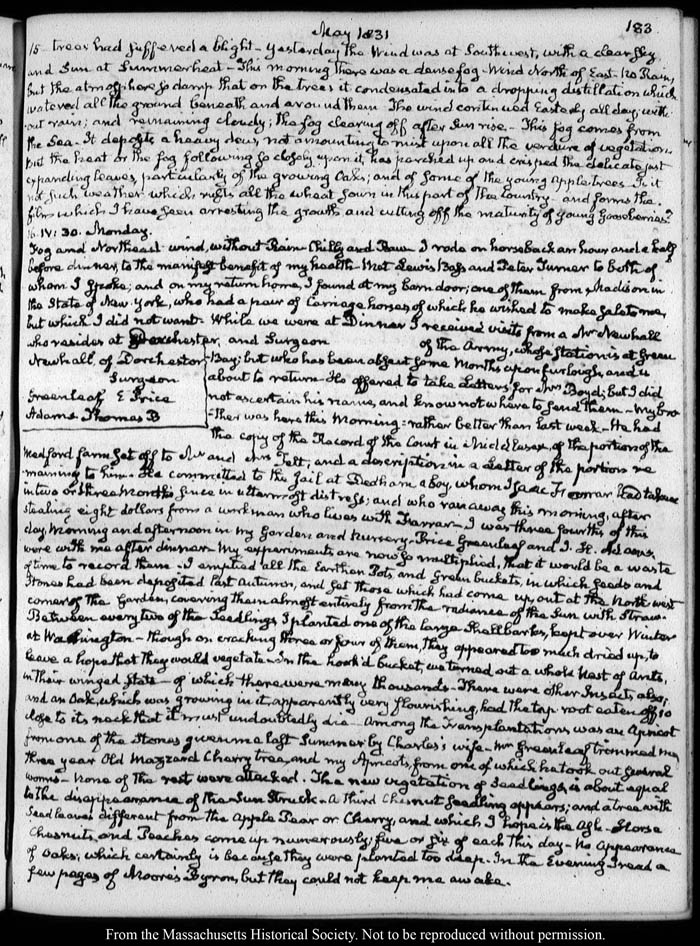 May 1831
183
15 — trees had suffered a blight — yesterday the Wind was at Southwest, with a clear sky
and Sun at Summer heat — This morning there was a dense fog — Wind North of East — No Rain,
but the atmosphere so damp that on the trees it condensated into a dropping distillation which
watered all the ground beneath and around them. The wind continued Easterly all day, with-
out rain; and remaining cloudy; the fog clearing off after Sun rise. — This fog comes from
the Sea. It deposits a heavy dew, not amounting to mist upon all the verdure of vegetation.
But the heat or the fog following so closely upon it, has parched up and crisped the delicate just
expanding leaves, particularly of the growing Oaks; and of some of the young Apple trees. Is it
not such weather which rusts all the wheat sown in this part of the Country — and forms the
film which I have seen arresting the growth and cutting off the maturity of young Gooseberries?
16. IV: 30. Monday.
Fog and Northeast wind, without Rain Chilly and Raw. I rode on horseback an hour and a half
before dinner, to the manifest benefit of my health — Met Lewis Bass and Peter Turner to both of
whom I spoke; and on my return home, I found at my barn door; one of them from Madison in
the State of New York, who had a pair of Carriage horses of which he wished to make sale to me,
but which I did not want. While we were at Dinner I received visits from a Mr Newhall
who resides at Dorchester, and Surgeon of the Army, whose station is at Green
Newhall of Dorchester
Surgeon
Greenleaf E Price
Adams Thomas B
Bay; but who has been absent some Months upon furlough, and is
about to return — He offered to take Letters for Mrs Boyd; but I did
not ascertain his name, and know not where to send them — My bro-
ther was here this Morning: rather better than last week — He had
the copy of the Record of the Court in Middlesex, of the portion of the
Medford farm set off to Mr and Mrs Felt; and a description in a Letter of the portion re
maining to him. He committed to the Jail at Dedham a Boy, whom Isaac Farrar had taken
in two or three Months since in uttermost distress; and who ran away this morning, after
stealing eight dollars from a workman who lives with Farrar — I was three fourths of this
day, Morning and afternoon in my Garden and Nursery. Price Greenleaf and I. H. Adams
were with me after dinner — My experiments are now so multiplied, that it would be a waste
of time to record them. — I emptied all the Earthen Pots and Green buckets, in which seeds and
Stones had been deposited last Autumn, and set those which had come up, out at the North west
corner of the Garden, covering them almost entirely from the radiance of the Sun with Straw.
Between every two of the Seedlings I planted one of the large Shellbarks, kept over Winter
at Washington — though on cracking three or four of them, they appeared too much dried up, to
leave a hope that they would vegetate — In the hook'd bucket, we turned out a whole Nest of Ants,
in their winged state — of which there were many thousands — There were other Insects, also;
and an Oak, which was growing in it, apparently very flourishing, had the tap root eaten off so
close to its neck that it must undoubtedly die — Among the Transplantations was an Apricot
from one of the Stones given me last Summer by Charles's wife. Mr Greenleaf trimmed my
three year Old Mazzard Cherry tree, and my Apricots, from one of which he took out several
worms — None of the rest were attacked. The new vegetation of Seedlings is about equal
to the disappearance of the Sun Struck — A third Chesnut Seedling appears; and a tree with
Seed leaves different from the Apple Pear or Cherry, and which I hope is the Ash — Horse
Chesnuts and Peaches come up numerously; five or six of each this day — No Appearance
of Oaks; which certainly is because they were planted too deep. In the Evening I read a
few pages of Moore's Byron, but they could not keep me awake.
From the Massachusetts Historical Society. Not to be reproduced without permission.